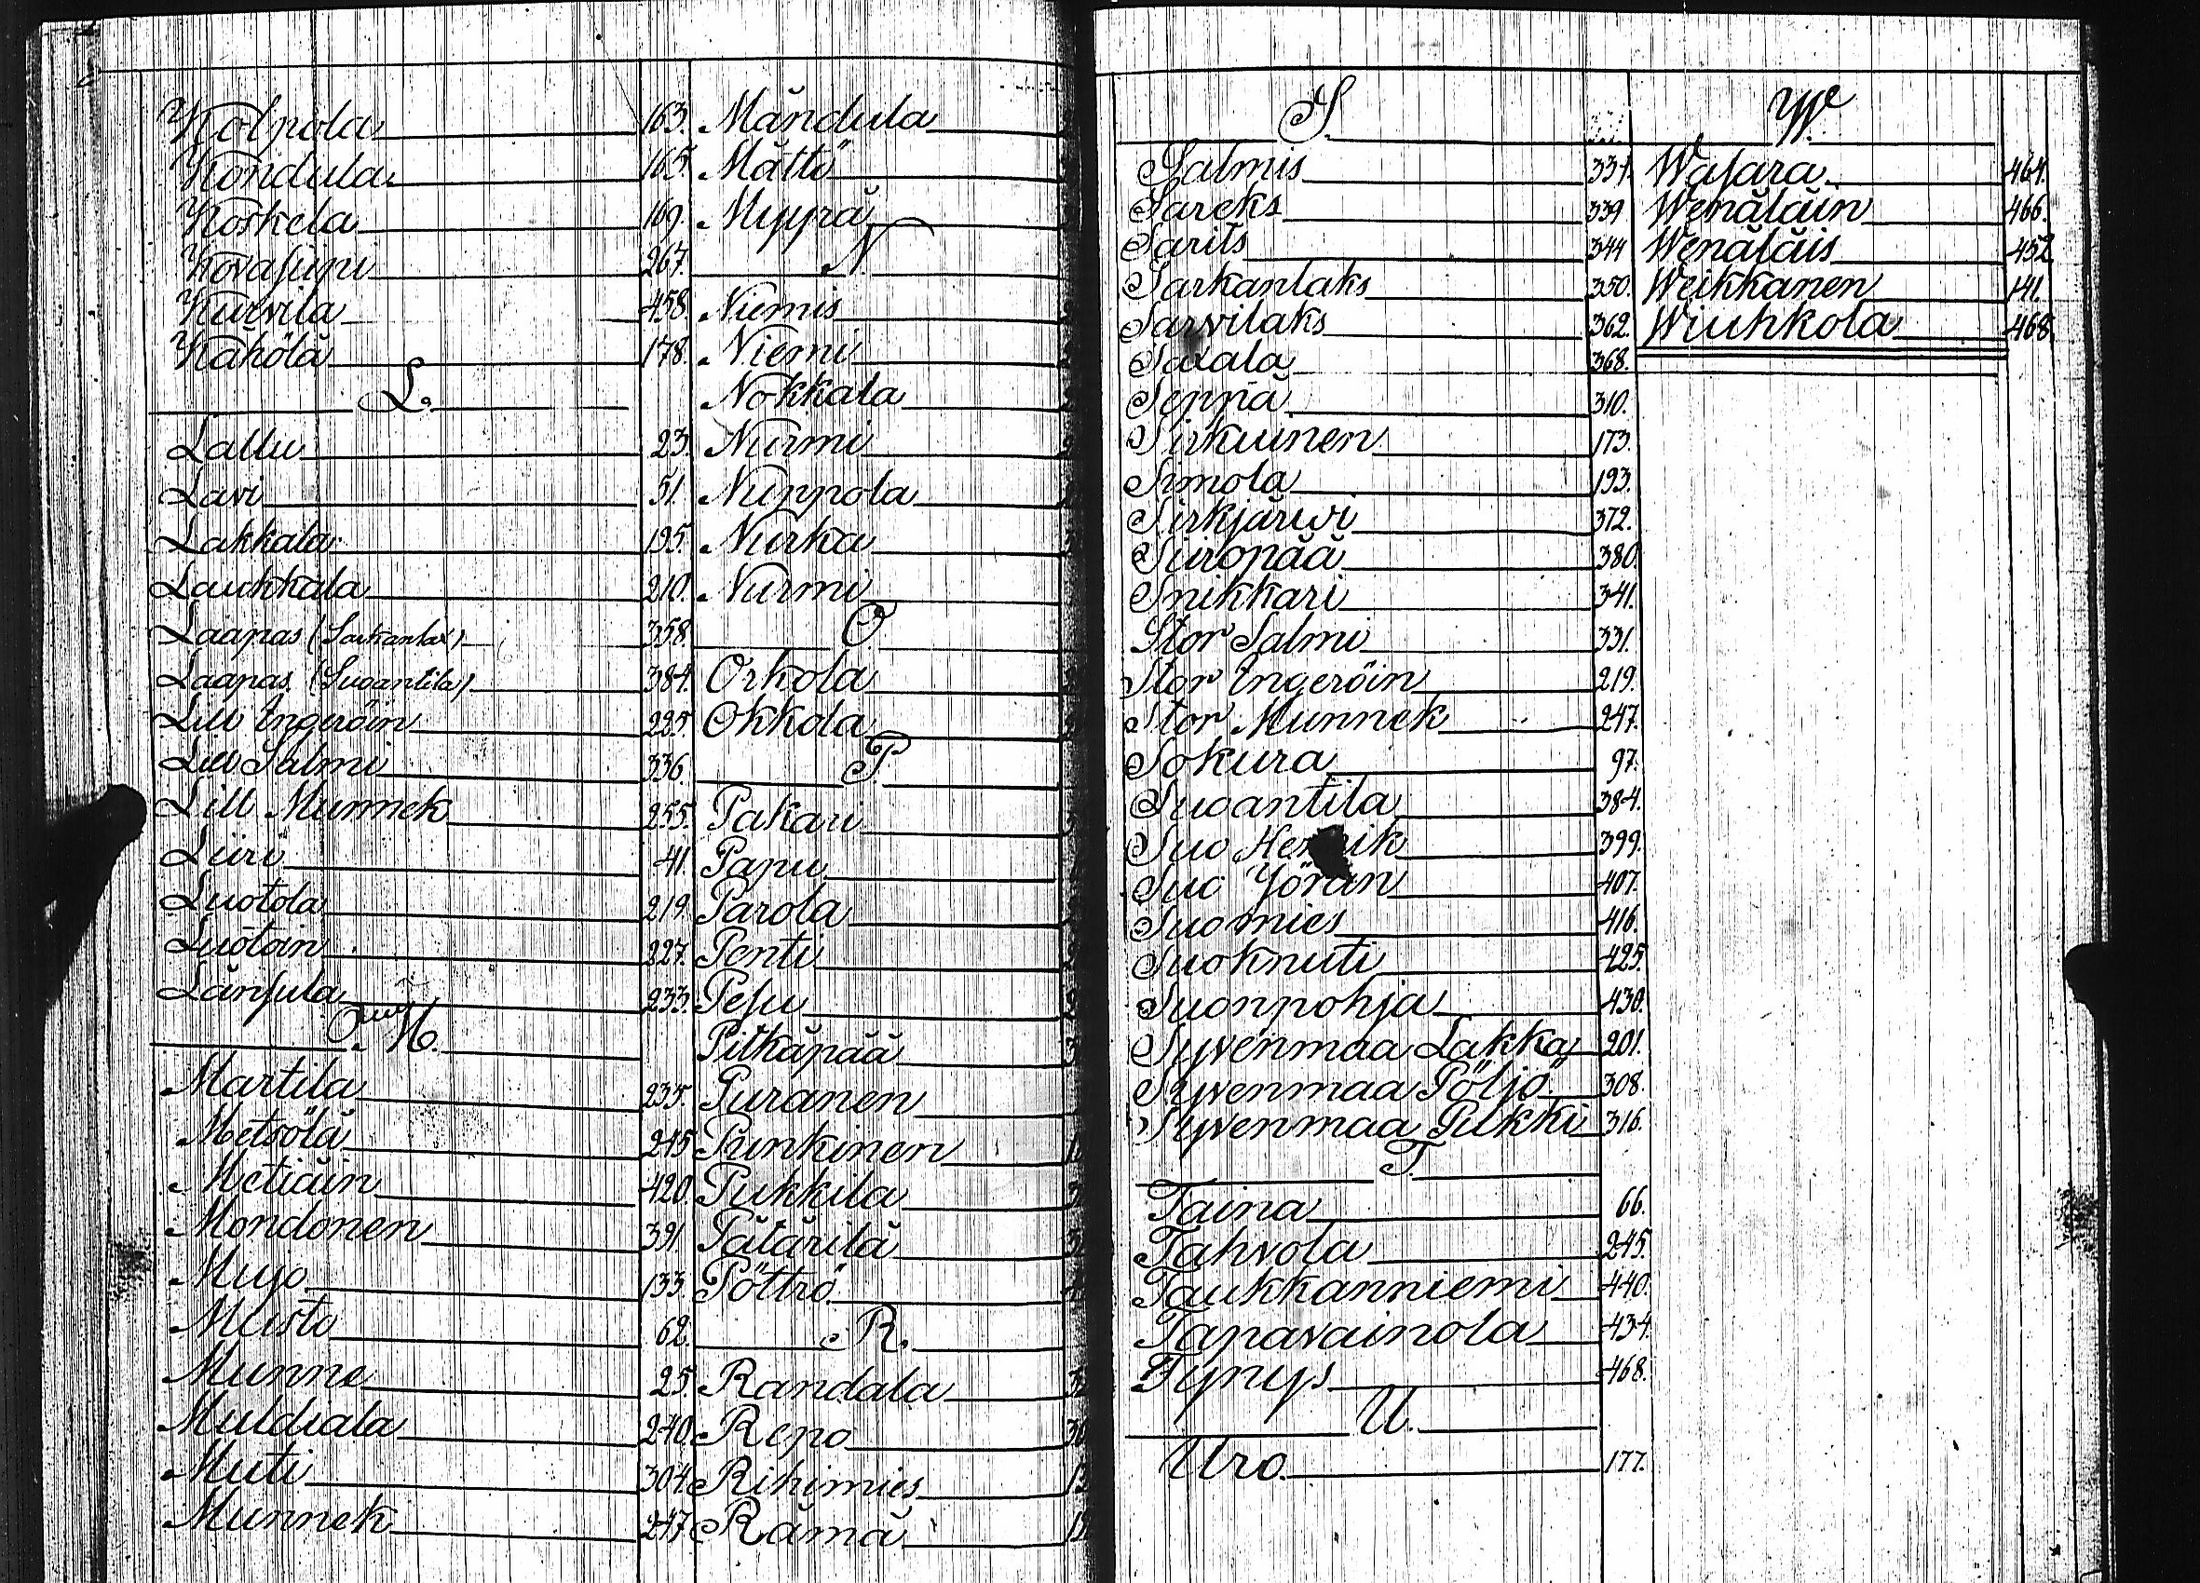 Kolpola 163.
Kondula 165.
Koskela 169.
Kovasipu 267.
Kurvila 458.
Kähölä 178.
L.
Lallu 23.
Lavi 51.
Lakkala 195.
Laukkala 210.
Laapas (Sarkanlax) 358.
Laapas (Suoantila) 384.
Lill Engeröin 225.
Lill Salmi 336.
Lill Munnek 255.
Liiri 41.
Luotola 219.
Luotoin 227.
Länsula 233.
M.
Martila 235.
Metsölä 245
Metiäin 420.
Mondonen 391.
Mujo 133.
Musto 62.
Munne 25.
Muldiala 240.
Muti 304
Munnek 247
Mändula
Mättö
Myyrä
N
Niemis
Niemi
Nokkala
Nurmi
Nuppola
Nurka
Nurmi
O.
Orkola
Okkola
P.
Pakari
Papu
Parola
Penti
Pesu
Pitkäpää
Puranen
Punkinen
Pukkila
Pätärilä
Pöttrö
R.
Randala
Repo
Rihimies
Rämä
S.
Salmis 331.
Sareks 339
Sarits 344
Sarkanlaks 350.
Sarvilaks 362.
Saxala 368.
Seppä 310.
Sirkiunen 173.
Simola 193.
Sirkjärwi 372.
Siiropää 380.
Snikkari 341.
Stor Salmi 331.
Stor Engeröin 219.
Stor Munnek 247.
Sokura 97.
Suoantila 384.
Suo Henrik 399.
Suo Yöran 407.
Suomies 416.
Suoknuti 425.
Suonpohja 430.
Syvenmaa Lakka 201.
Syvenmaa Pöljö 308.
Syvenmaa Pukki 316.
T.
Taina 66.
Tahvola 245.
Taukkanniemi 440.
Tapavainola 434.
Tynys 468.
U.
Uro 177.
W.
Wasara 464.
Wenäläin 466.
Wenäläis 452
Weikkanen 141.
Wiuhkola 468.